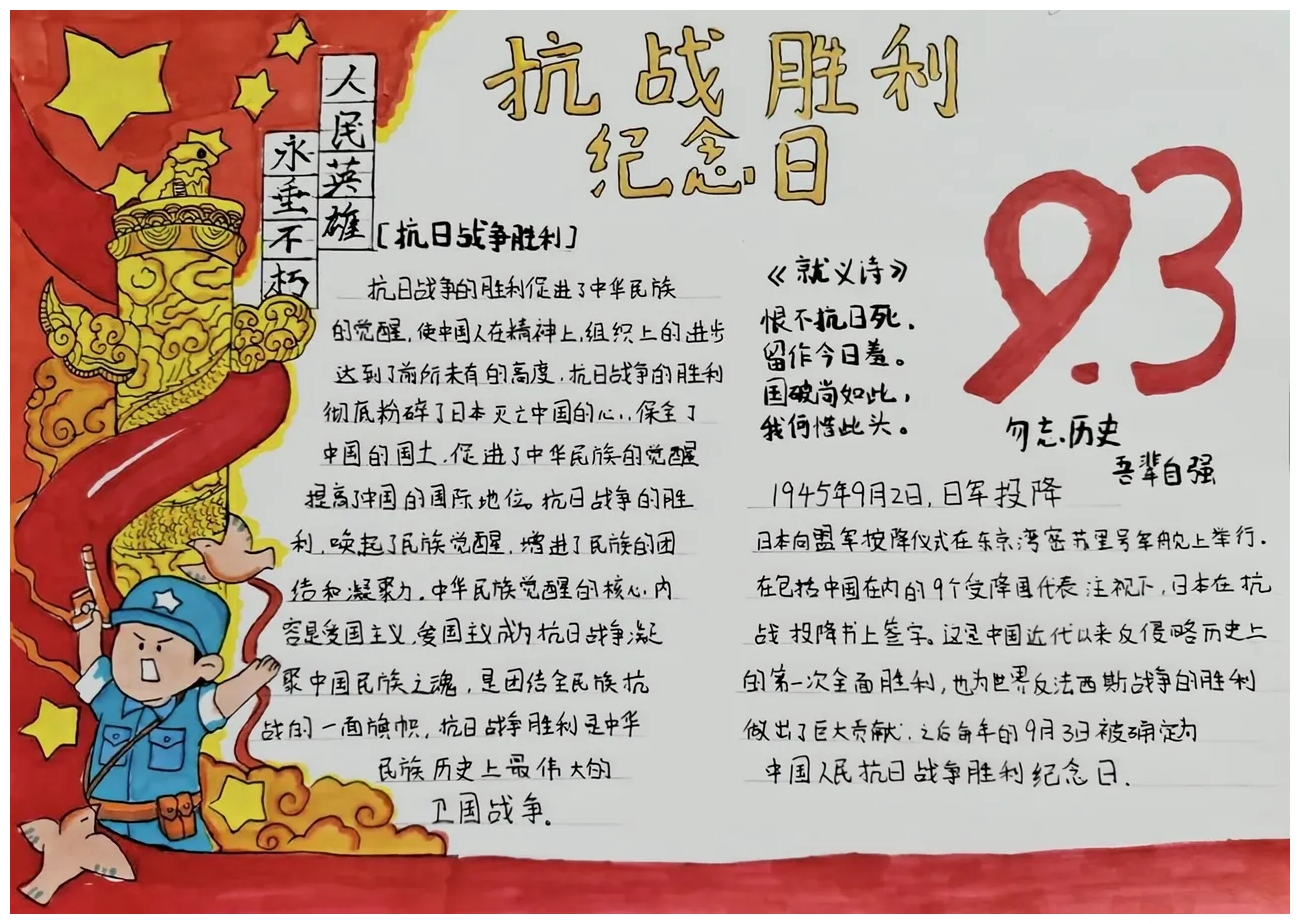 抗战胜利
纪念日
人民英雄
永垂不朽
[抗日战争胜利]
抗日战争的胜利促进了中华民族
的觉醒,使中国人在精神上,组织上的进步
达到了前所未有的高度,抗日战争的胜利
彻底粉碎了日本灭亡中国的心,保全了
中国的国土,促进了中华民族的觉醒
提高了中国的国际地位。抗日战争的胜
利,唤起了民族觉醒,增进了民族的团
结和凝聚力.中华民族觉醒的核心内
容是爱国主义,爱国主义成为抗日战争凝
聚中国民族之魂,是团结全民族抗
战的一面旗帜,抗日战争胜利是中华
民族历史上最伟大的
卫国战争。
《就义诗》
恨不抗日死,
留作今日羞。
国破尚如此,
我何惜此头。
9.3
勿忘历史
吾辈自强
1945年9月2日,日军投降
日本向盟军投降仪式在东京湾密苏里号军舰上举行.
在包括中国在内的9个受降国代表注视下,日本在抗
战投降书上签字。这是中国近代以来反侵略历史上
的第一次全面胜利,也为世界反法西斯战争的胜利
做出了巨大贡献.之后每年的9月3日被确定为
中国人民抗日战争胜利纪念日.